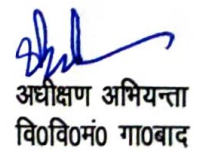 अधीक्षण अभियन्ता
वि०वि०मं० गा०बाद